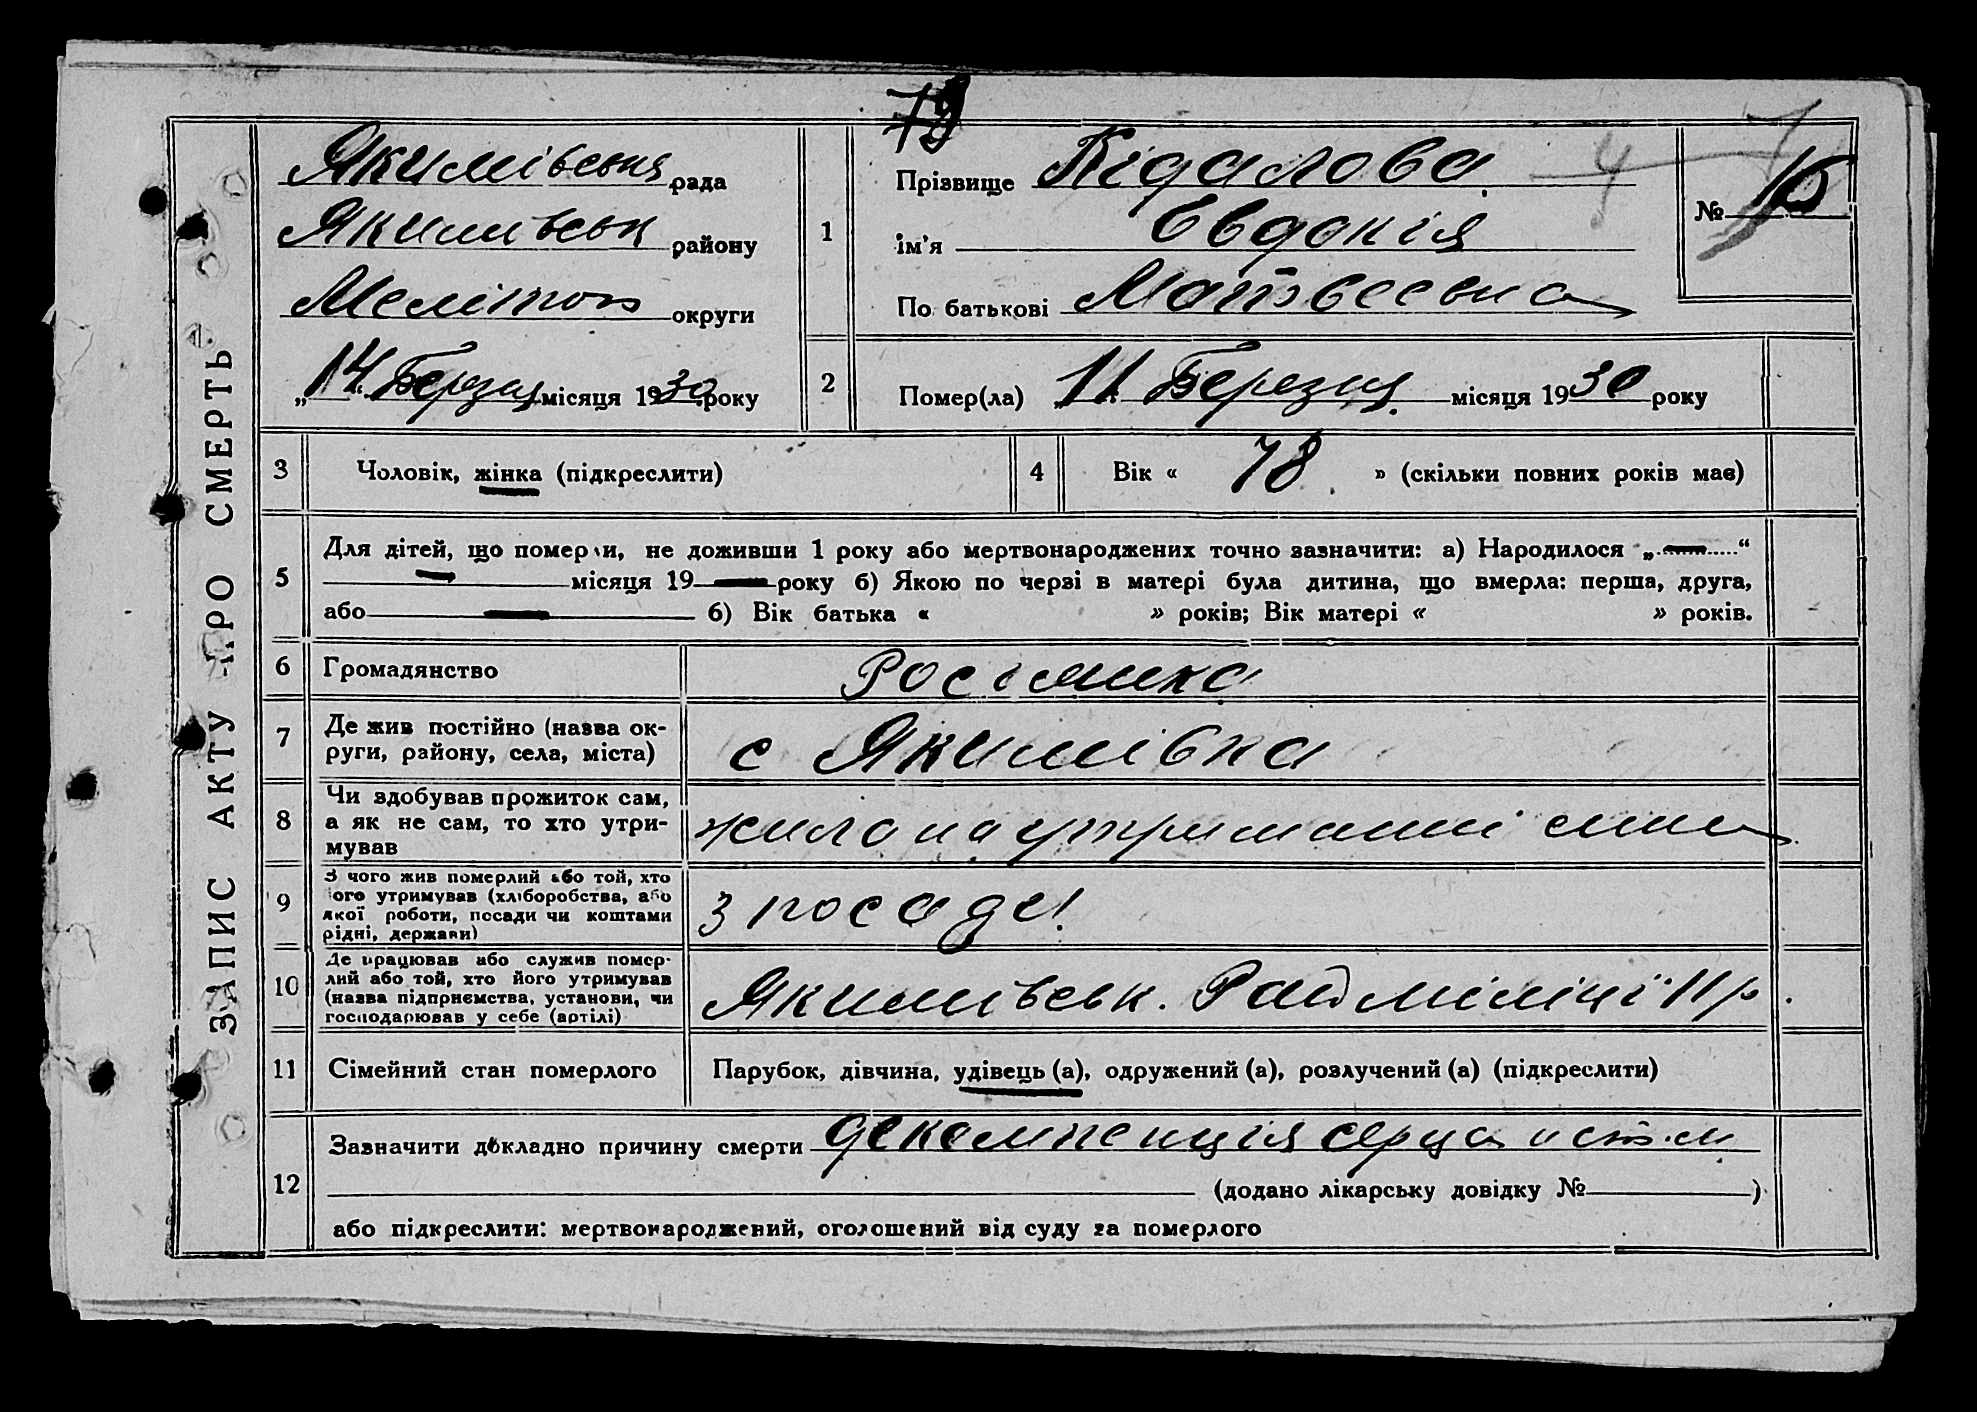 ЗАПИС АКТУ ПРО СМЕРТЬ
Якимівська рада
Якимівськ району
Мелітоп округи
„14 Березня місяця 1930 року
1
Прізвище Кідалова
ім'я Євдокія
По батькові Матвеевна
№ 16
2
Помер(ла) „11 Березня місяця 1930 року
3 Чоловік, жінка (підкреслити)
4 Вік « 78 » (скільки повних років має)
5
Для дітей, що померли, не доживши 1 року або мертвонароджених точно зазначити: а) Народилося „—“
— місяця 19— року б) Якою по черзі в матері була дитина, що вмерла: перша, друга,
або — б) Вік батька « » років; Вік матері « » років.
6 Громадянство Росіянка
7 Де жив постійно (назва ок-
руги, району, села, міста)
с Якимівка
8 Чи здобував прожиток сам,
а як не сам, то хто утри-
мував
жила на утриманні сина
9 З чого жив померлий або той, хто
його утримував (хліборобства, або
якої роботи, посади чи коштами
рідні, держави)
з посади
10 Де працював або служив помер-
лий або той, хто його утримував
(назва підприємства, установи, чи
господарював у себе (артілі)
Якимівськ. Рай міліції
11 Сімейний стан померлого Парубок, дівчина, удівець (а), одружений (а), розлучений (а) (підкреслити)
12
Зазначити докладно причину смерти декомпенція серца
(додано лікарську довідку № )
або підкреслити: мертвонароджений, оголошений від суду за померлого